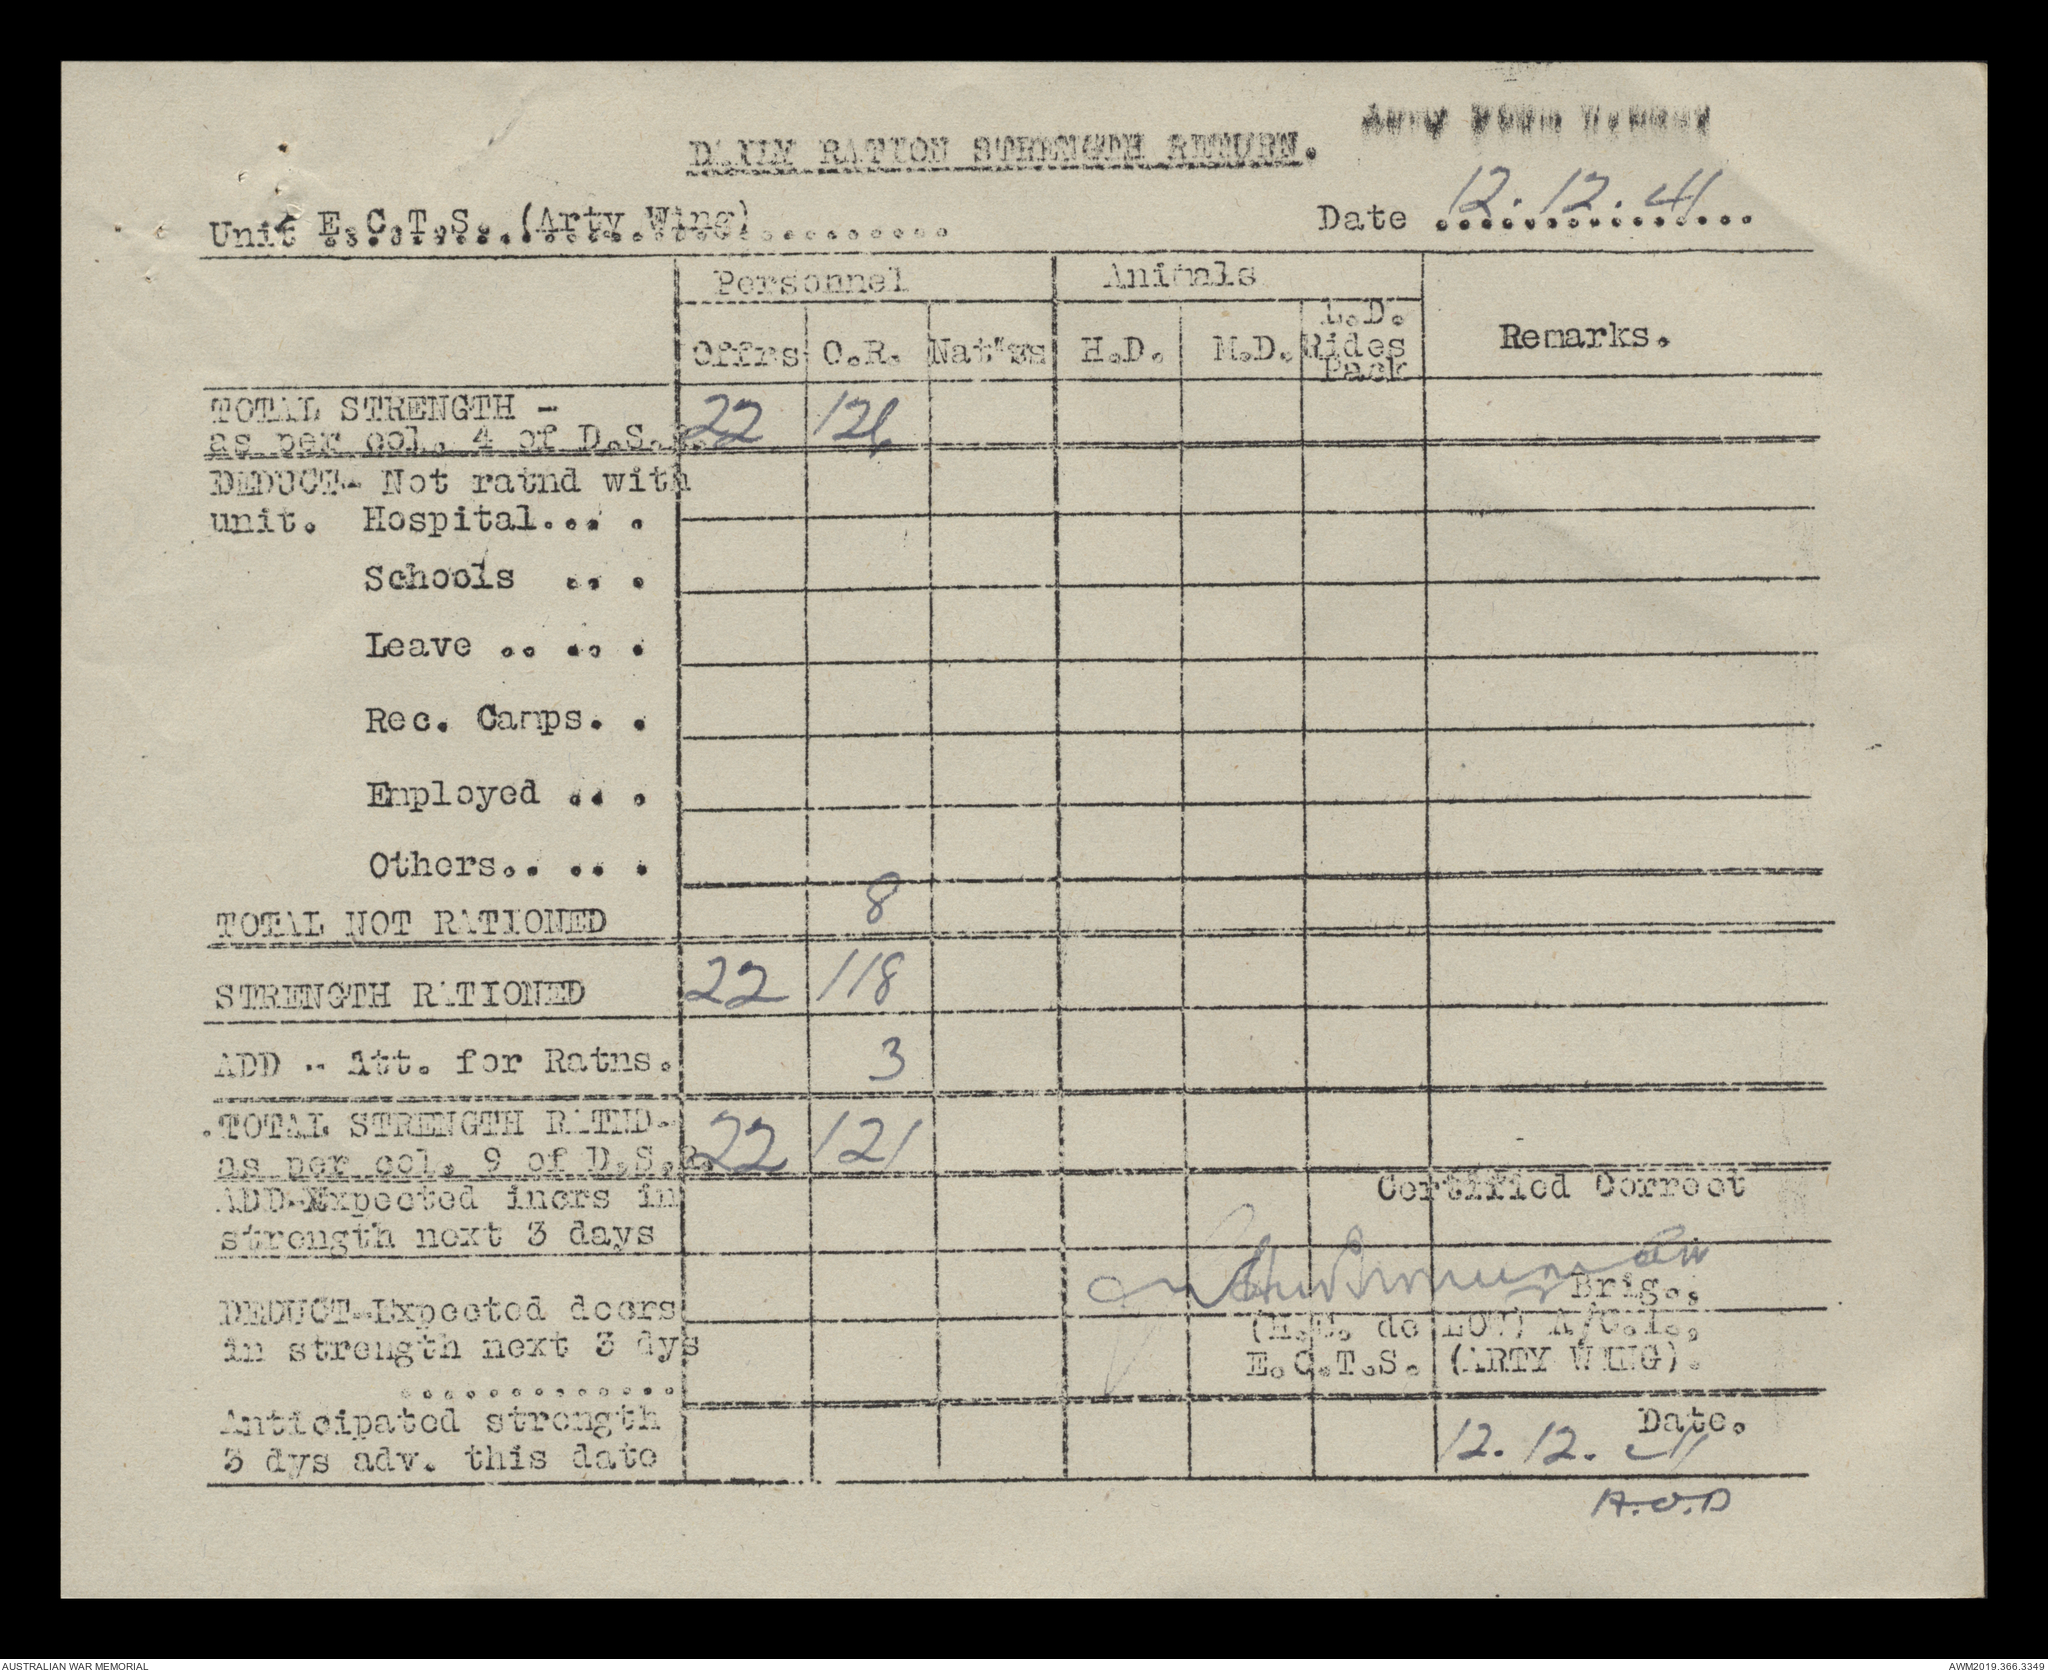 RATION STRENGTH RETURN.
Unit E.C.T.S. (Arty Wing)....................
Date 12.12.41
Personnel Animals
Offrs O.R. H.D. M.D. L.D. Rides Pack Remarks.
TOTAL STRENGTH - 22 126
as per col. 4 of D.S.R.
DEDUCT- Not ratnd with
unit. Hospital... .
Schools .. .
Leave .. .. .
Rec. Camps. .
Employed .. .
Others.. .. .
TOTAL NOT RATIONED 8
STRENGTH RATIONED 22 118
ADD - Att. for Ratns. 3
TOTAL STRENGTH RATND- 22 121
as per col. 9 of D.S.R.
Certified Correct
ADD-Expected incrs in
strength next 3 days
Brig.,
DEDUCT-Expected decrs
(H.C. de LOW) A/C.I.,
in strength next 3 dys
E.C.T.S. (ARTY WING).
.............
Anticipated strength Date.
3 dys adv. this date 12.12.41
A.O.D
AUSTRALIAN WAR MEMORIAL AWM2019.366.3349